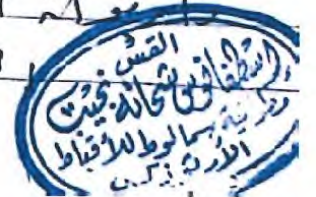 القس
اسطفانوس شحاته بخيت
مطرانية سمالوط للأقباط
الأرثوذكس